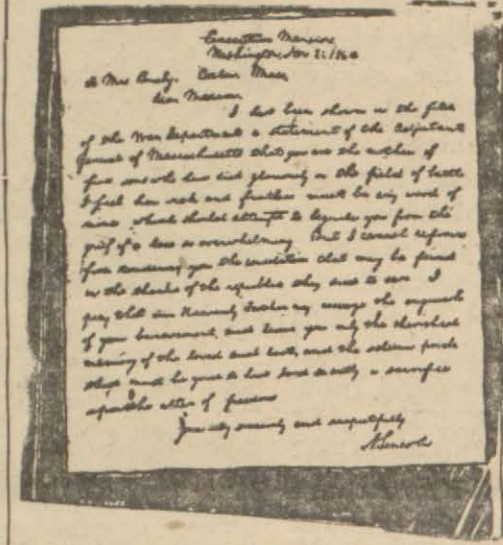 Executive Mansion
Washington, Nov 21, 1864
To Mrs Bixby. Boston Mass,
Dear Madam
I have been shown in the files
of the War Department a statement of the Adjutant
General of Massachusetts that you are the mother of
five sons who have died gloriously on the field of battle
I feel how weak and fruitless must be any word of
mine which should attempt to beguile you from the
grief of a loss so overwhelming But I cannot refrain
from tendering you the consolation that may be found
in the thanks of the republic they died to save I
pray that our Heavenly Father may assuage the anguish
of your bereavement, and leave you only the cherished
memory of the loved and lost, and the solemn pride
that must be yours to have laid so costly a sacrifice
upon the altar of freedom
Yours very sincerely and respectfully
A Lincoln